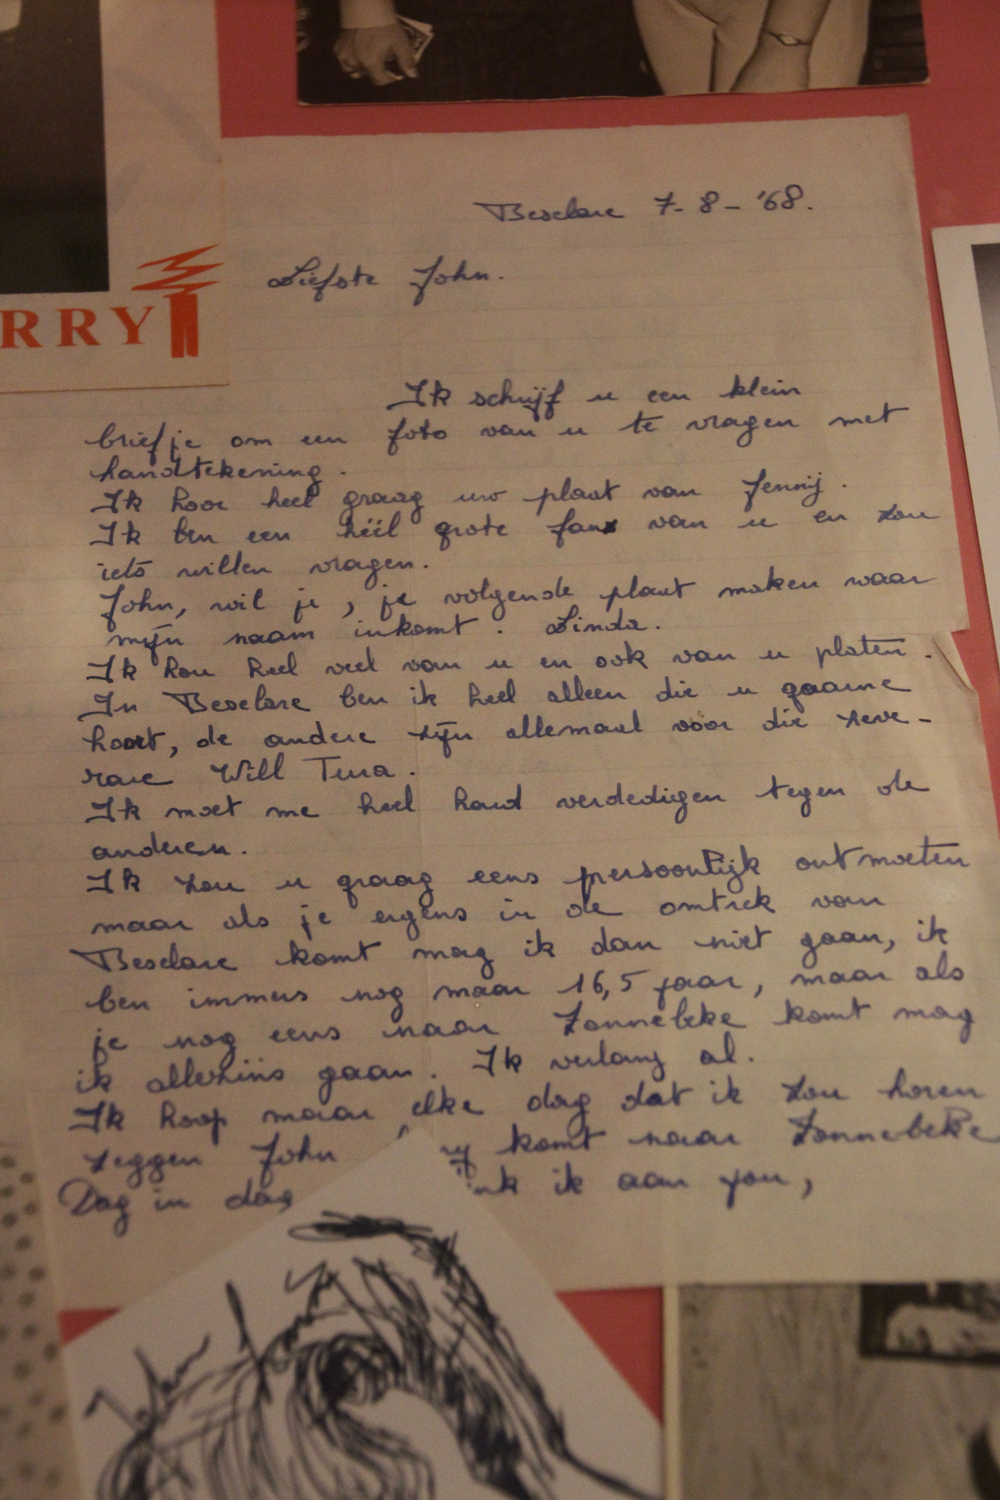 RRY
Beselare 7-8-'68.
Liefste John.
Ik schrijf u een klein
briefje om een foto van u te vragen met
handtekening.
Ik hoor heel graag uw plaat van Jennij.
Ik ben een héél grote fan van u en zou
iets willen vragen.
John, wil je, je volgende plaat maken waar
mijn naam inkomt. Linda.
Ik hou heel veel van u en ook van u platen.
In Beselare ben ik heel alleen die u gaarne
hoort, de andere zijn allemaal voor die zeve-
raar Will Tura.
Ik moet me heel hard verdedigen tegen de
anderen.
Ik zou u graag eens persoonlijk ontmoeten
maar als je ergens in de omtrek van
Beselare komt mag ik dan niet gaan, ik
ben immers nog maar 16,5 jaar, maar als
je nog eens naar Zonnebeke komt mag
ik allezins gaan. Ik verlang al.
Ik hoop maar elke dag dat ik zou horen
zeggen John ry komt naar Zonnebeke
Dag in dag nk ik aan jou,